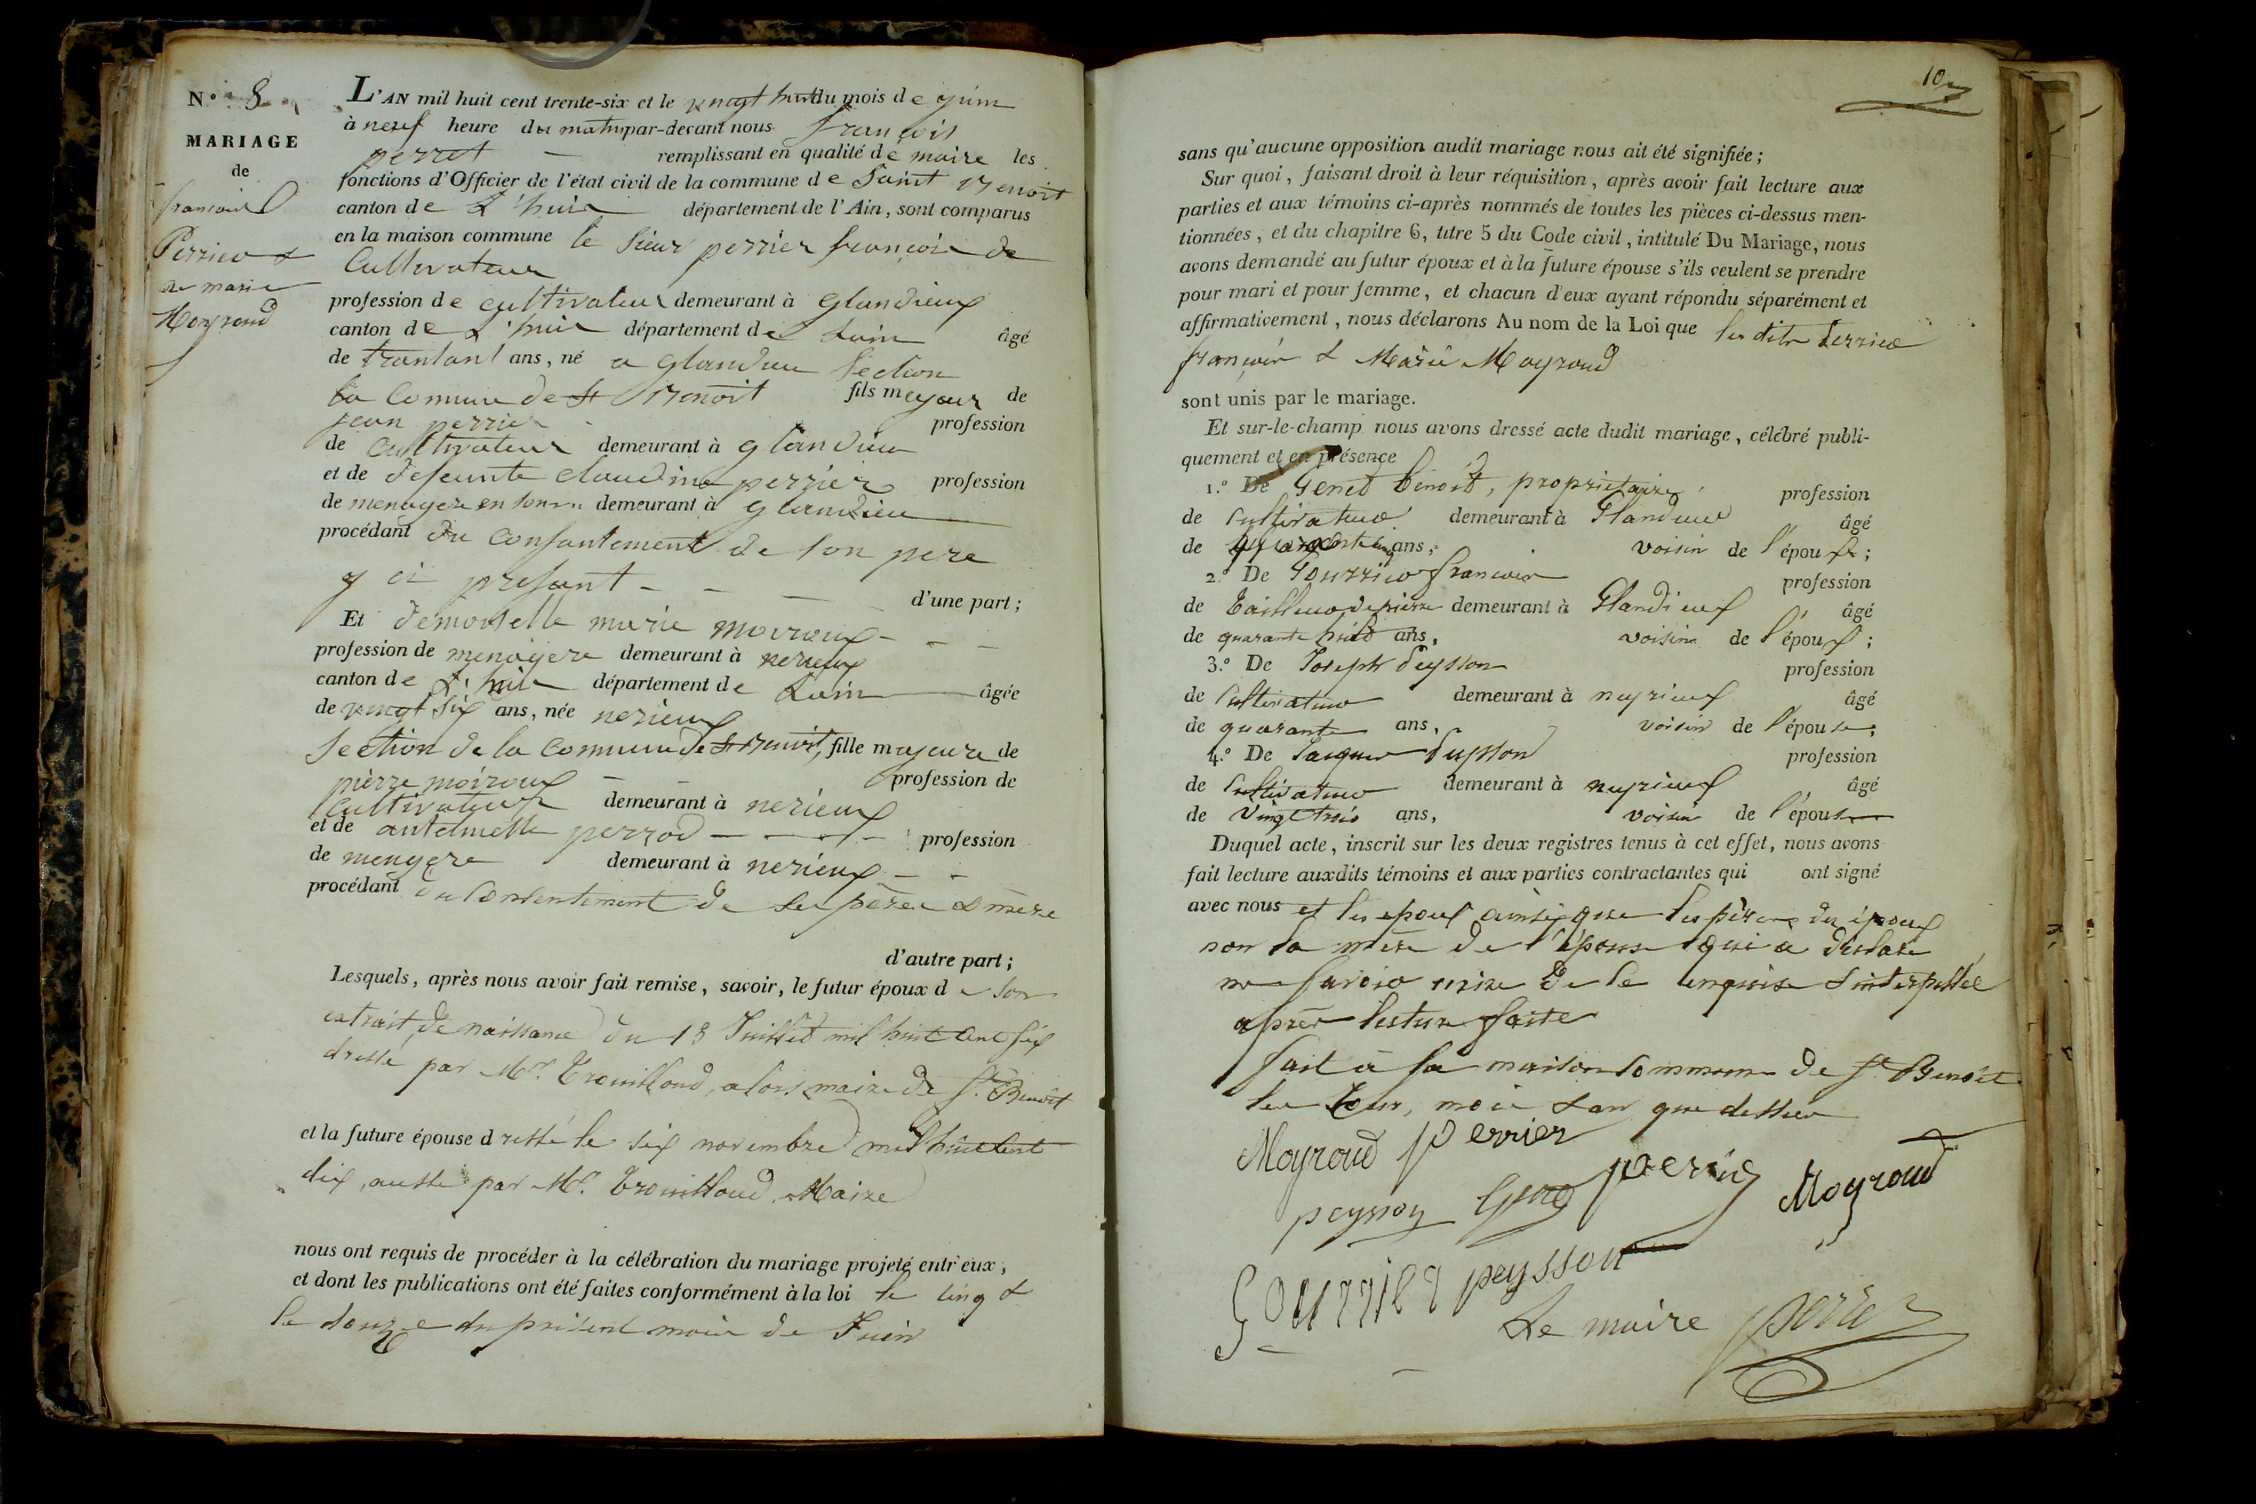 N.° 8
MARIAGE
de
françois
Perrier &
de marie
Moyroud
L'AN mil huit cent trente-six et le vingt huit du mois de juin
à neuf heure du matin par-devant nous françois
perret – remplissant en qualité de maire les
fonctions d'Officier de l'état civil de la commune de Saint Benoit
canton de L'huis département de l'Ain, sont comparus
en la maison commune le sieur perrier françois de
Cultivateur
profession de cultivateur demeurant à glandieux
canton de L'huis département de Lain âgé
de trantant ans, né a glandieu Section
la Comune de St Benoit fils mayeur de
jean perrier profession
de cultivateur demeurant à glandieu
et de defeunte claudine perrier profession
de menagere en son demeurant à glandieu
procédant du consantement de son pere
y ci presant – – – d'une part;
Et demoiselle marie moiroux – – –
profession de menagere demeurant à nerieux
canton de L'huis département de Lain âgée
de vingt six ans, née nerieux
Section de la Commune de St Benoit, fille majeure de
pierre moiroux – – profession de
Cultivateur demeurant à nerieux
et de antoinette perrod – – – – profession
de menagere demeurant à nerieux – –
procédant du Consentement de ses père & mère
d'autre part;
Lesquels, après nous avoir fait remise, savoir, le futur époux de son
extrait de naissance du 13 Juillet mil huit cent six
dressé par Mr. Trouilloud, alors maire de St. Benoit
et la future épouse dressé le six novembre mil huit cent
dix, aussi par Mr. Trouilloud, Maire
nous ont requis de procéder à la célébration du mariage projeté entr'eux,
et dont les publications ont été faites conformément à la loi le cinq &
le douze du présent mois de Juin
10
sans qu'aucune opposition audit mariage nous ait été signifiée;
Sur quoi, faisant droit à leur réquisition, après avoir fait lecture aux
parties et aux témoins ci-après nommés de toutes les pièces ci-dessus men-
tionnées, et du chapitre 6, titre 5 du Code civil, intitulé Du Mariage, nous
avons demandé au futur époux et à la future épouse s'ils veulent se prendre
pour mari et pour femme, et chacun d'eux ayant répondu séparément et
affirmativement, nous déclarons Au nom de la Loi que les dits Perrier
françois & Marie Moyroud
sont unis par le mariage.
Et sur-le-champ nous avons dressé acte dudit mariage, célébré publi-
quement et en présence
1.° De Genet Benoit, propriétaire, profession
de Cultivateur demeurant à Glandieux âgé
de ans, voisin de l'époux;
2.° De Gourrier françois profession
de Tailleur de pierre demeurant à Glandieux âgé
de quarante huit ans, voisin de l'époux;
3.° De Joseph Peysson profession
de Cultivateur demeurant à neyrieux âgé
de quarante ans, voisin de l'épouse;
4.° De Jacques Peysson profession
de Cultivateur demeurant à neyrieux âgé
de Vingt trois ans, voisin de l'épouse
Duquel acte, inscrit sur les deux registres tenus à cet effet, nous avons
fait lecture auxdits témoins et aux parties contractantes qui ont signé
avec nous et les époux ainsi que les pères des époux
non la mère de l'épouse qui a déclaré
ne savoir de le enquise & interpellée
après lecture faite
fait à la maison commune de St. Benoit
les jour, mois & an que dessus
Moyroud perrier
peysson perrier Moyroud
Gourrier peysson
Le maire perret